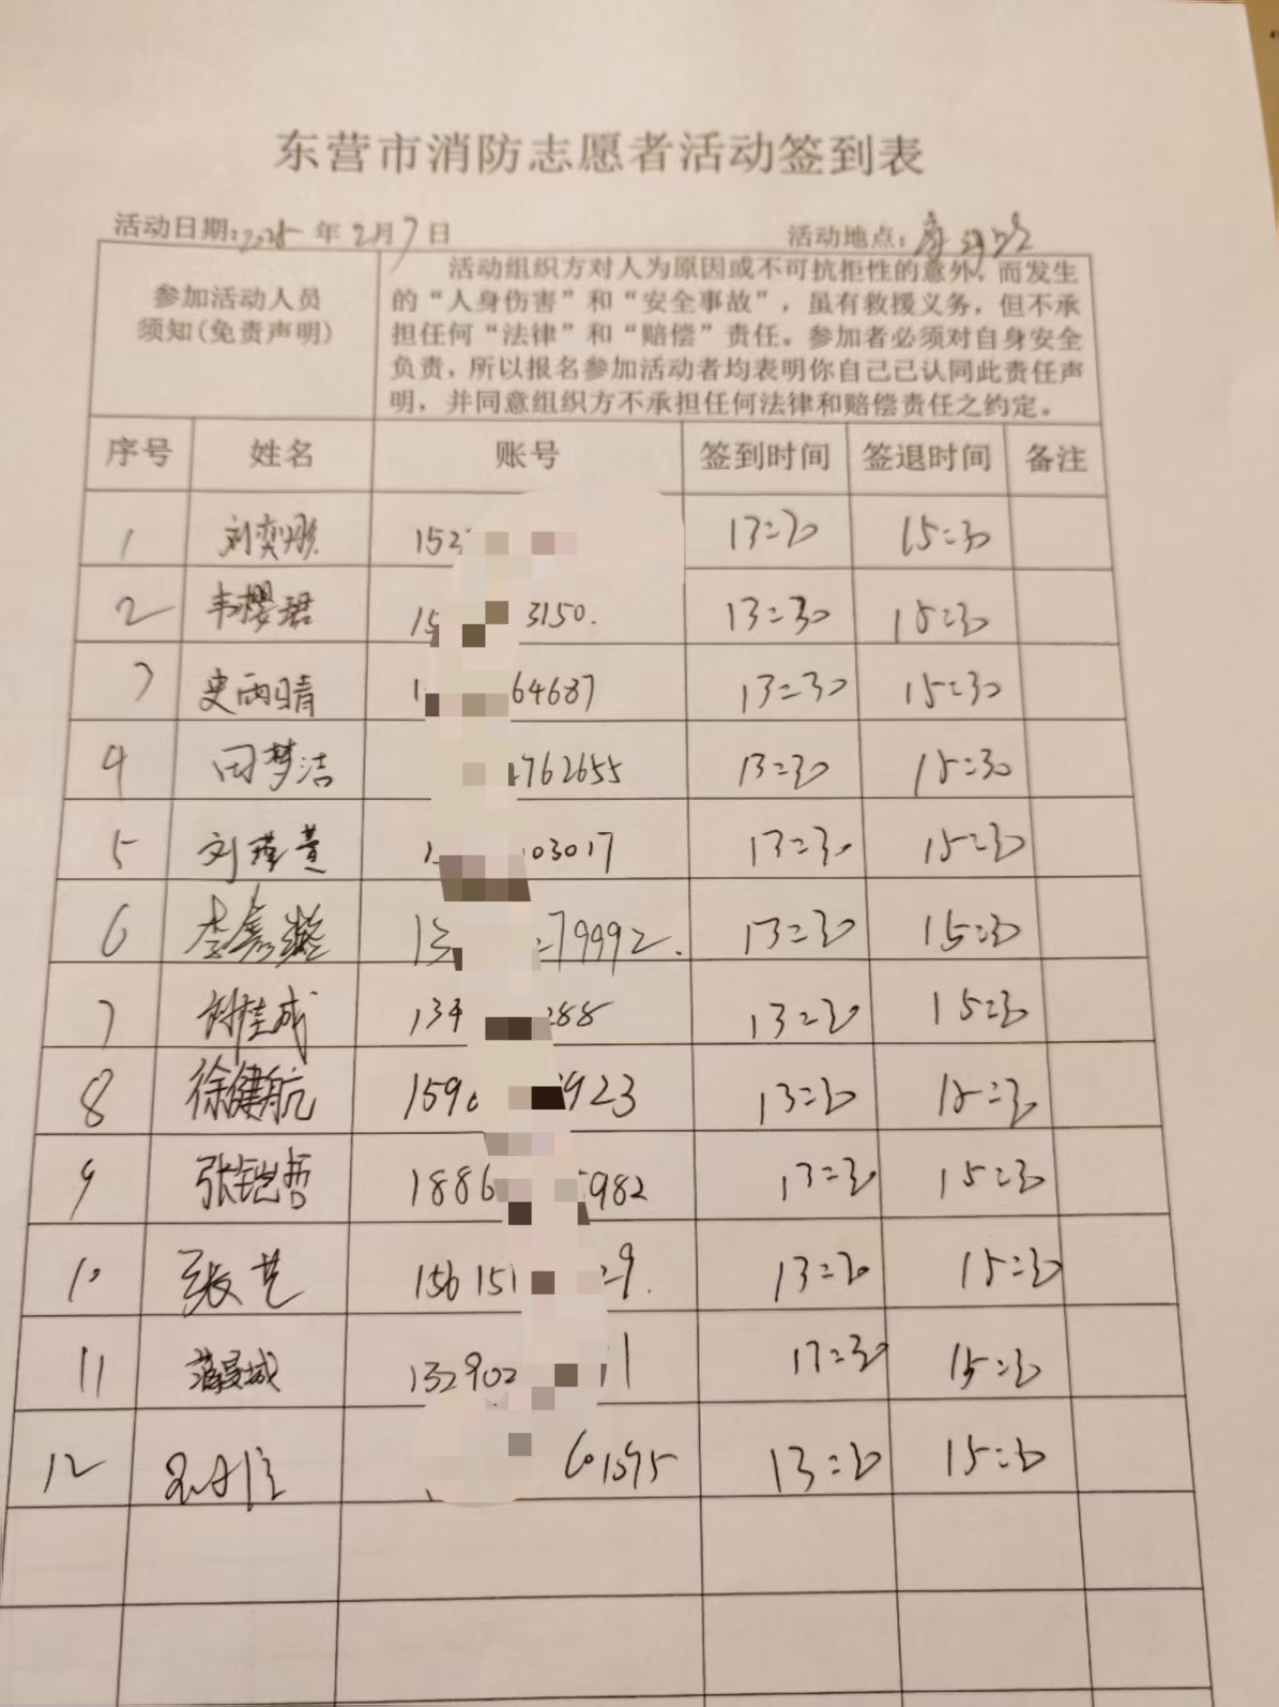 东营市消防志愿者活动签到表
活动日期: 年2月7日 活动地点:
参加活动人员
须知(免责声明)
活动组织方对人为原因或不可抗拒性的意外,而发生
的“人身伤害”和“安全事故”,虽有救援义务,但不承
担任何“法律”和“赔偿”责任。参加者必须对自身安全
负责,所以报名参加活动者均表明你自己已认同此责任声
明,并同意组织方不承担任何法律和赔偿责任之约定。
序号 姓名 账号 签到时间 签退时间 备注
1 刘奕彤 152 13:30 15:30
2 韦樱珺 15 3150. 13:30 15:30
3 史雨晴 1 64687 13:30 15:30
4 田梦洁 762655 13:30 15:30
5 刘瑾萱 1 03017 13:30 15:30
6 李鑫 13 79992. 13:30 15:30
7 桂成 134 288 13:30 15:30
8 徐健航 159 923 13:30 15:30
9 张铠哲 1886 982 13:30 15:30
10 张艺 156151 9. 13:30 15:30
11 132902 1 13:30 15:30
12 13:30 15:30